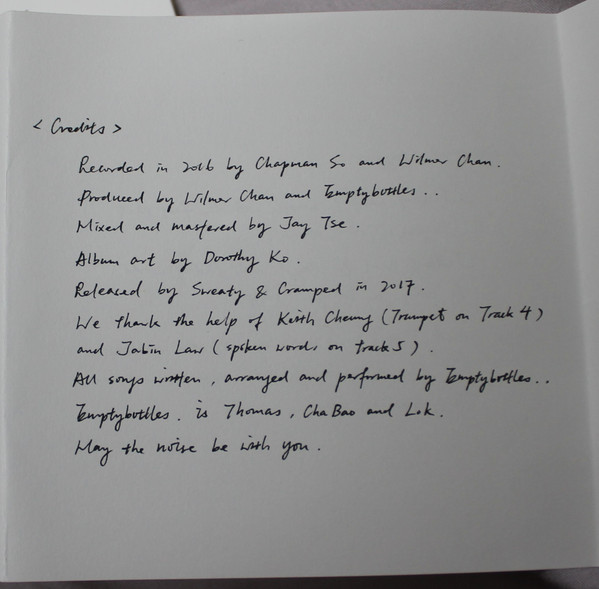 < Credits >
Recorded in 2016 by Chapman So and Wilmer Chan.
Produced by Wilmer Chan and Emptybottles..
Mixed and mastered by Jay Tse.
Album art by Dorothy Ko.
Released by Sweaty & Cramped in 2017.
We thank the help of Keith Cheung (Trumpet on Track 4)
and Jabin Law (spoken words on track 5).
All songs written, arranged and performed by Emptybottles..
Emptybottles. is Thomas, ChaBao and Lok.
May the noise be with you.